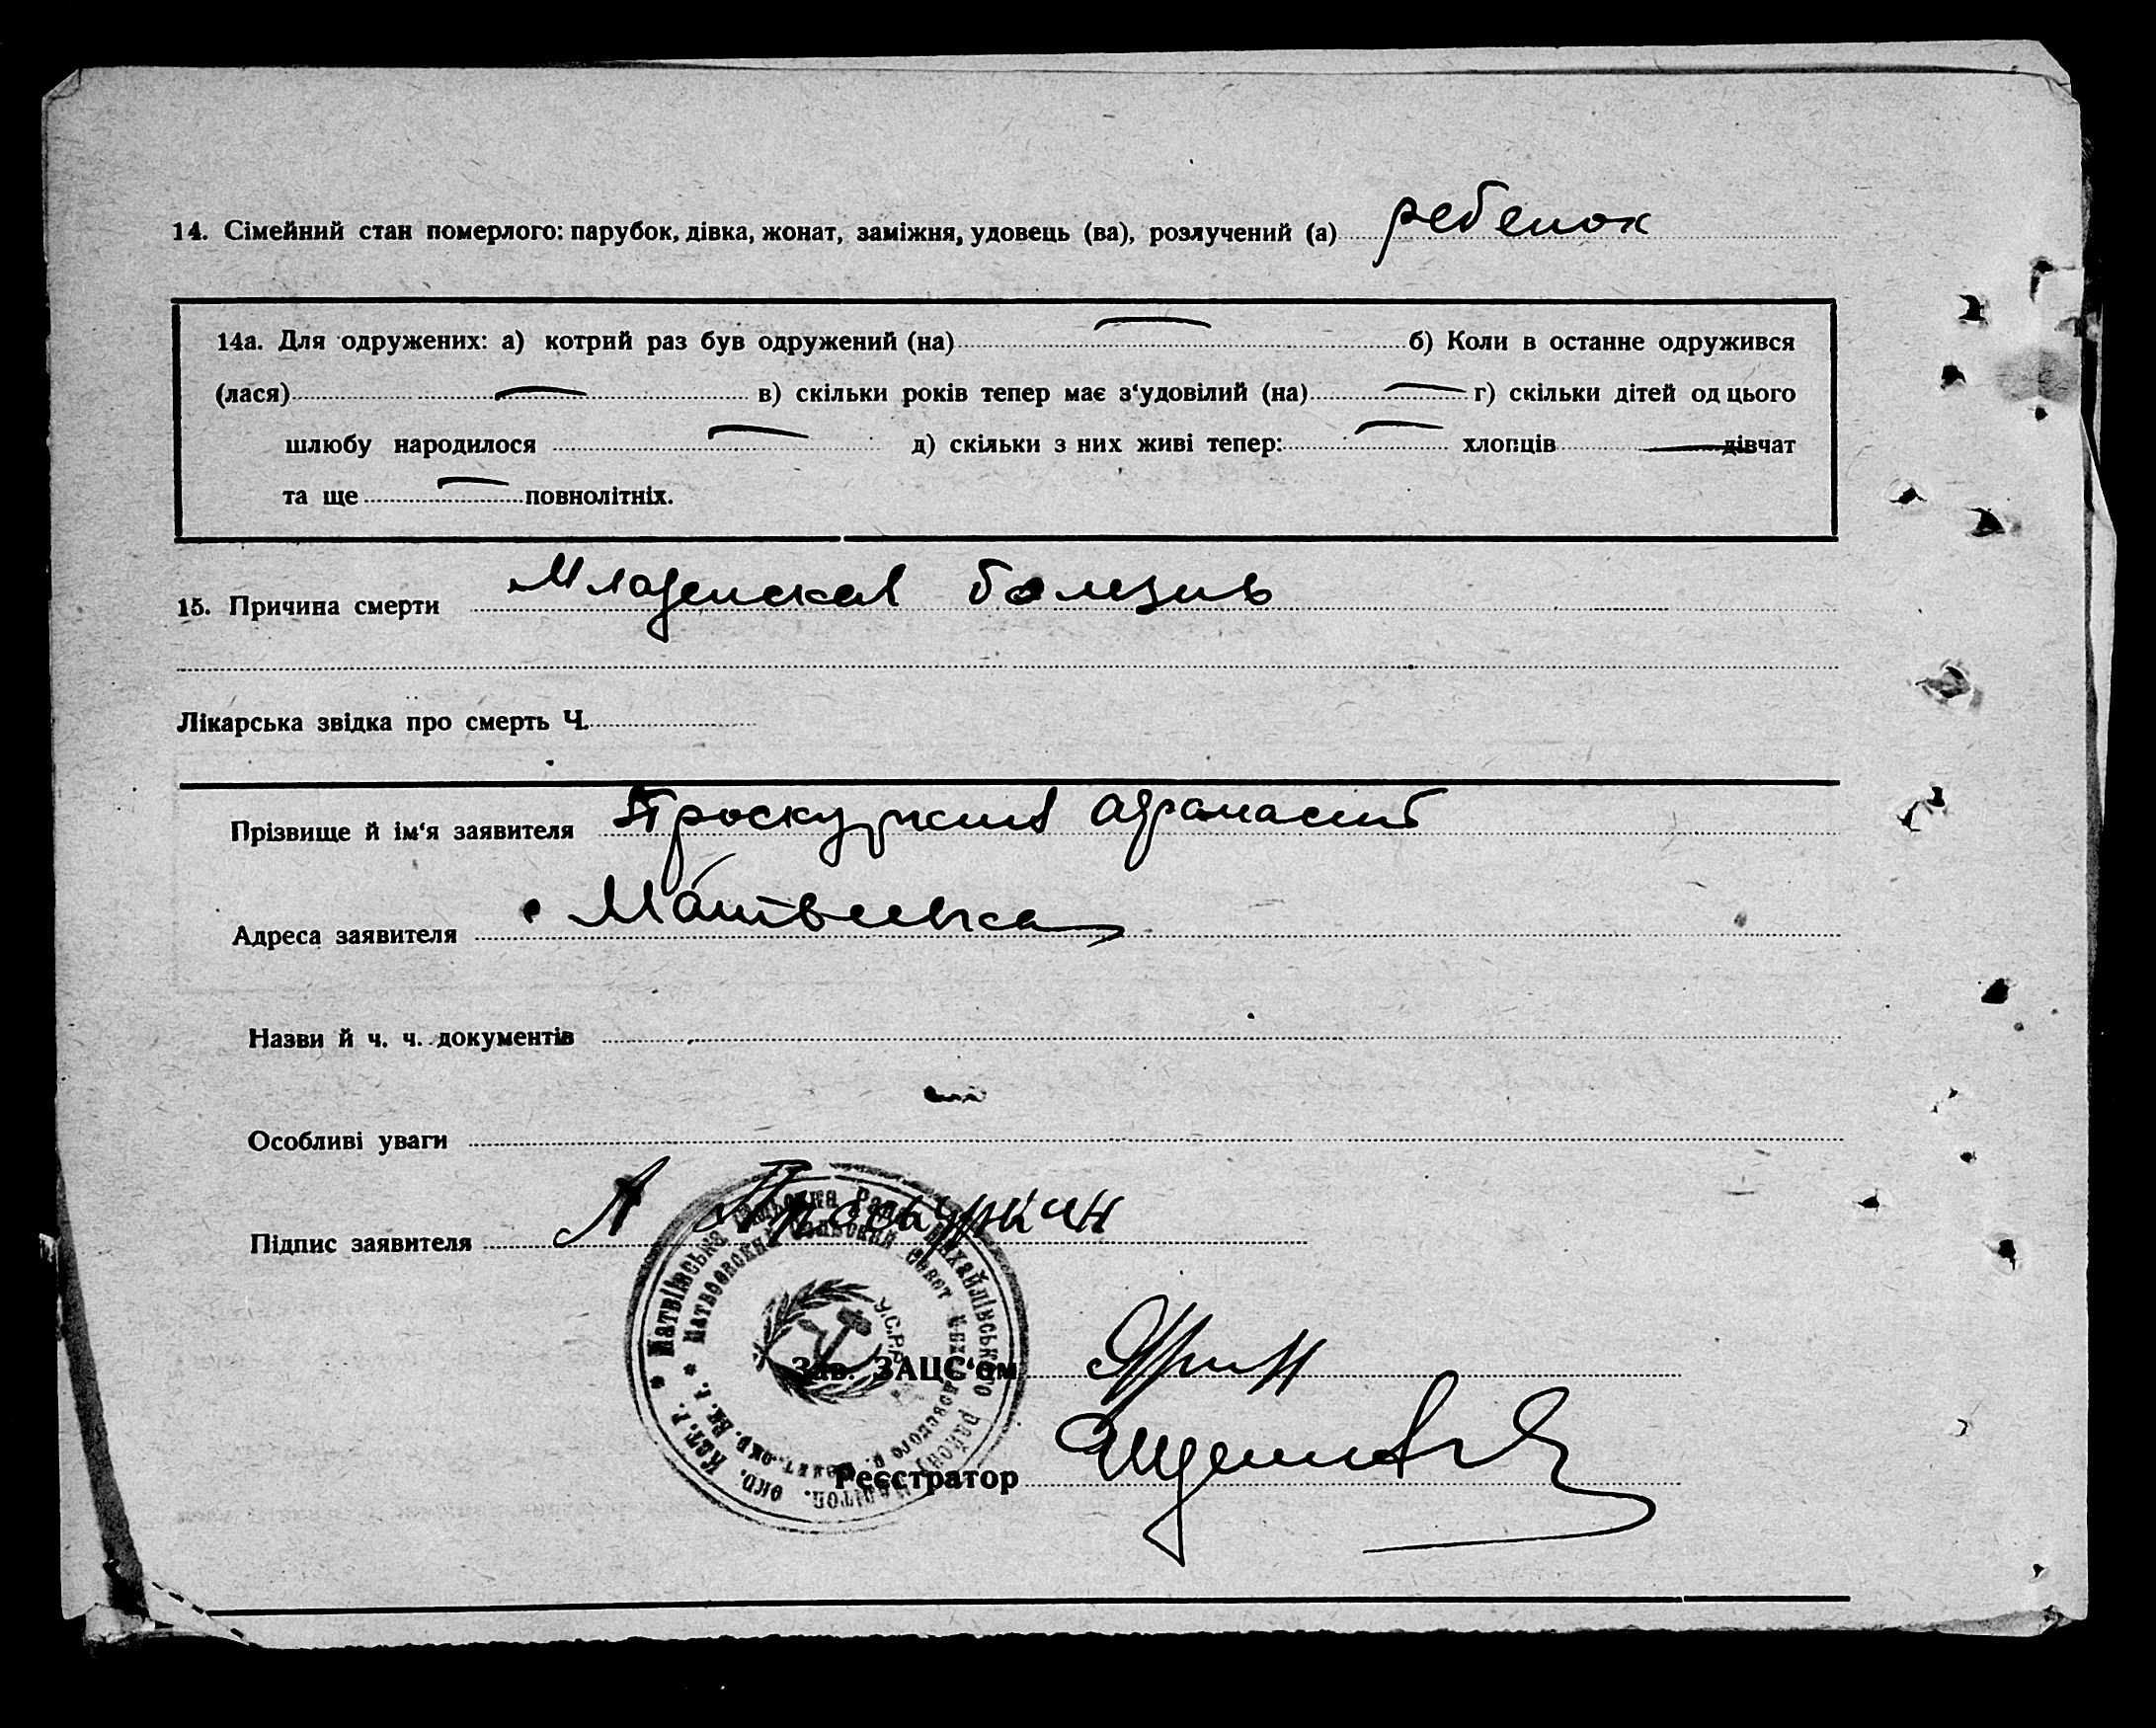 14. Сімейний стан померлого: парубок, дівка, жонат, заміжня, удовець (ва), розлучений (а) ребенок
14а. Для одружених: а) котрий раз був одружений (на) б) Коли в останне одружився
(лася) в) скільки років тепер має з‘удовілий (на) г) скільки дітей од цього
шлюбу народилося д) скільки з них живі тепер: хлопців дівчат
та ще повнолітніх.
15. Причина смерти Младенская болезнь
Лікарська звідка про смерть Ч.
Прізвище й ім‘я заявителя Проскуркин Афанасий
Адреса заявителя Матвеевка
Назви й ч. ч. документів
Особливі уваги
Підпис заявителя А Проскуркин
Матвіївська Сільська Рада Михайлівського району Мелітоп. окр. Кат. Г.
Матвеевский Сельский Совет Михайловского р. Мелит. окр. Ек. г.
У.С.Р.Р.
Зав. ЗАЦС‘ом
Реєстратор